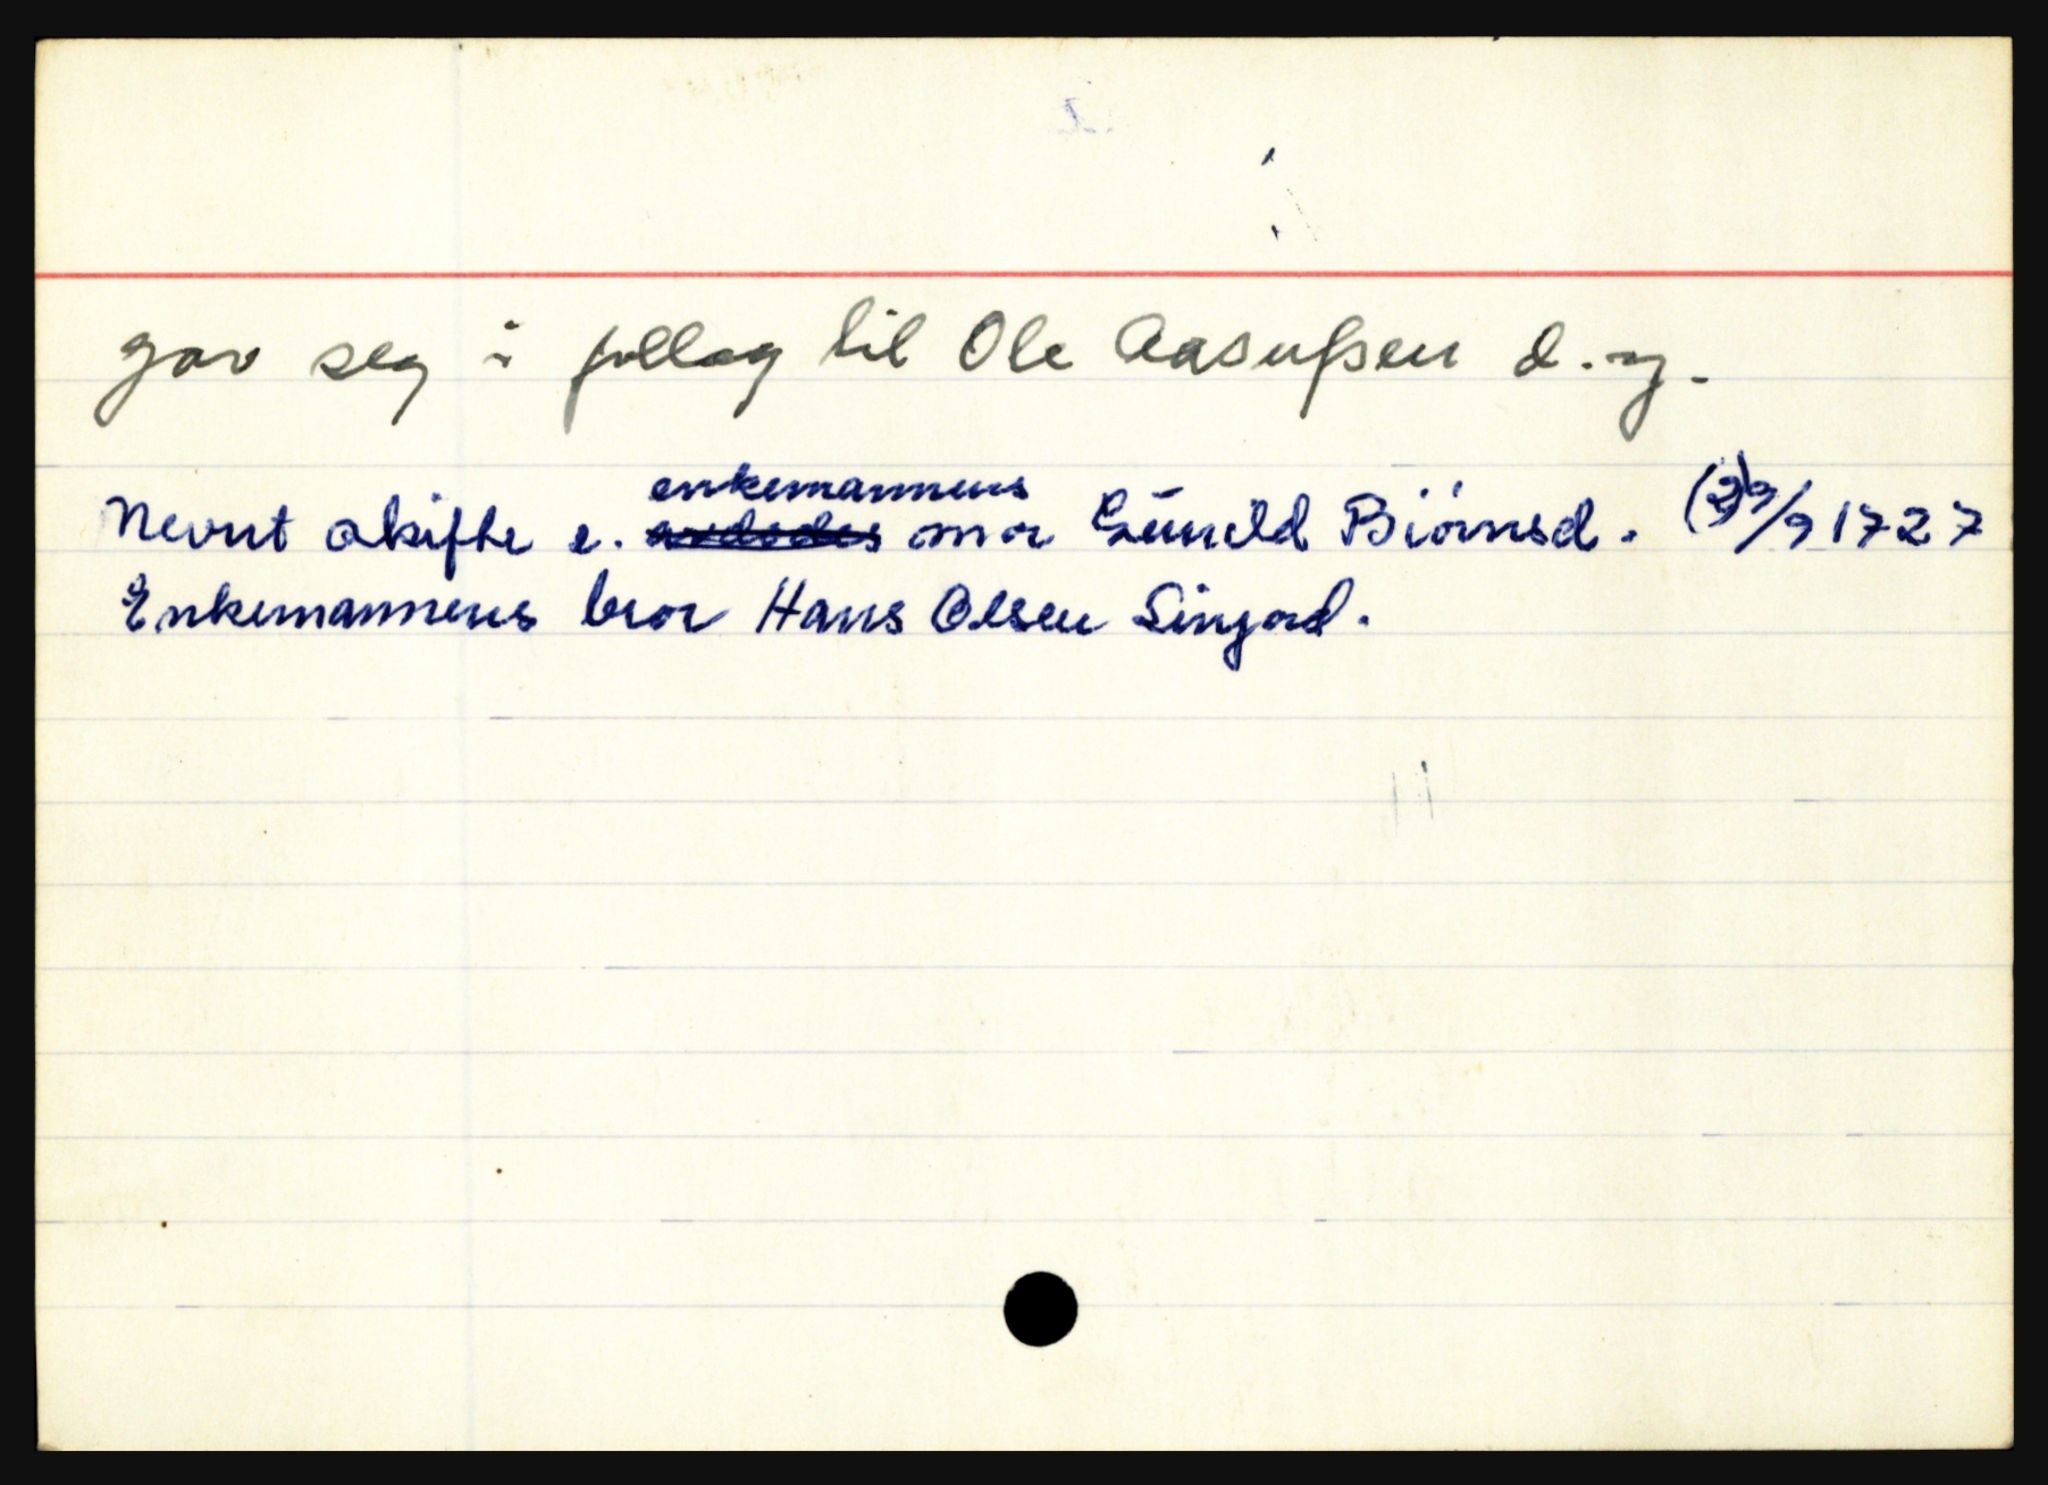 gav seg i follog til Ole Aasufsen d. y.
Nevnt skifte e. enkemannens mor Gŭnild Biórnsd. 1727
Enkemannens bror Hans Olsen Lingod.